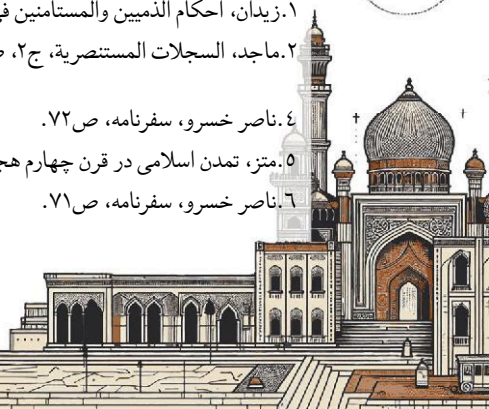 ١.زیدان، احکام الذمیین والمستأمنین
٢.ماجد، السجلات المستنصریة، ج٢،
٤.ناصر خسرو، سفرنامه، ص٧٢.
٥.متز، تمدن اسلامی در قرن چهارم
٦.ناصر خسرو، سفرنامه، ص٧١.